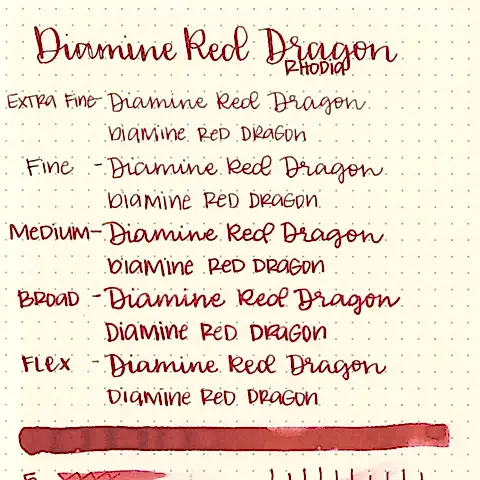 Diamine Red Dragon
RHODIA
EXTRA FINE - Diamine Red Dragon
DIAMINE RED DRAGON
FINE - Diamine Red Dragon
DIAMINE RED DRAGON
MEDIUM - Diamine Red Dragon
DIAMINE RED DRAGON
BROAD - Diamine Red Dragon
DIAMINE RED DRAGON
FLEX - Diamine Red Dragon
DIAMINE RED DRAGON